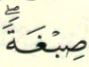 صِبْغَةًۖ